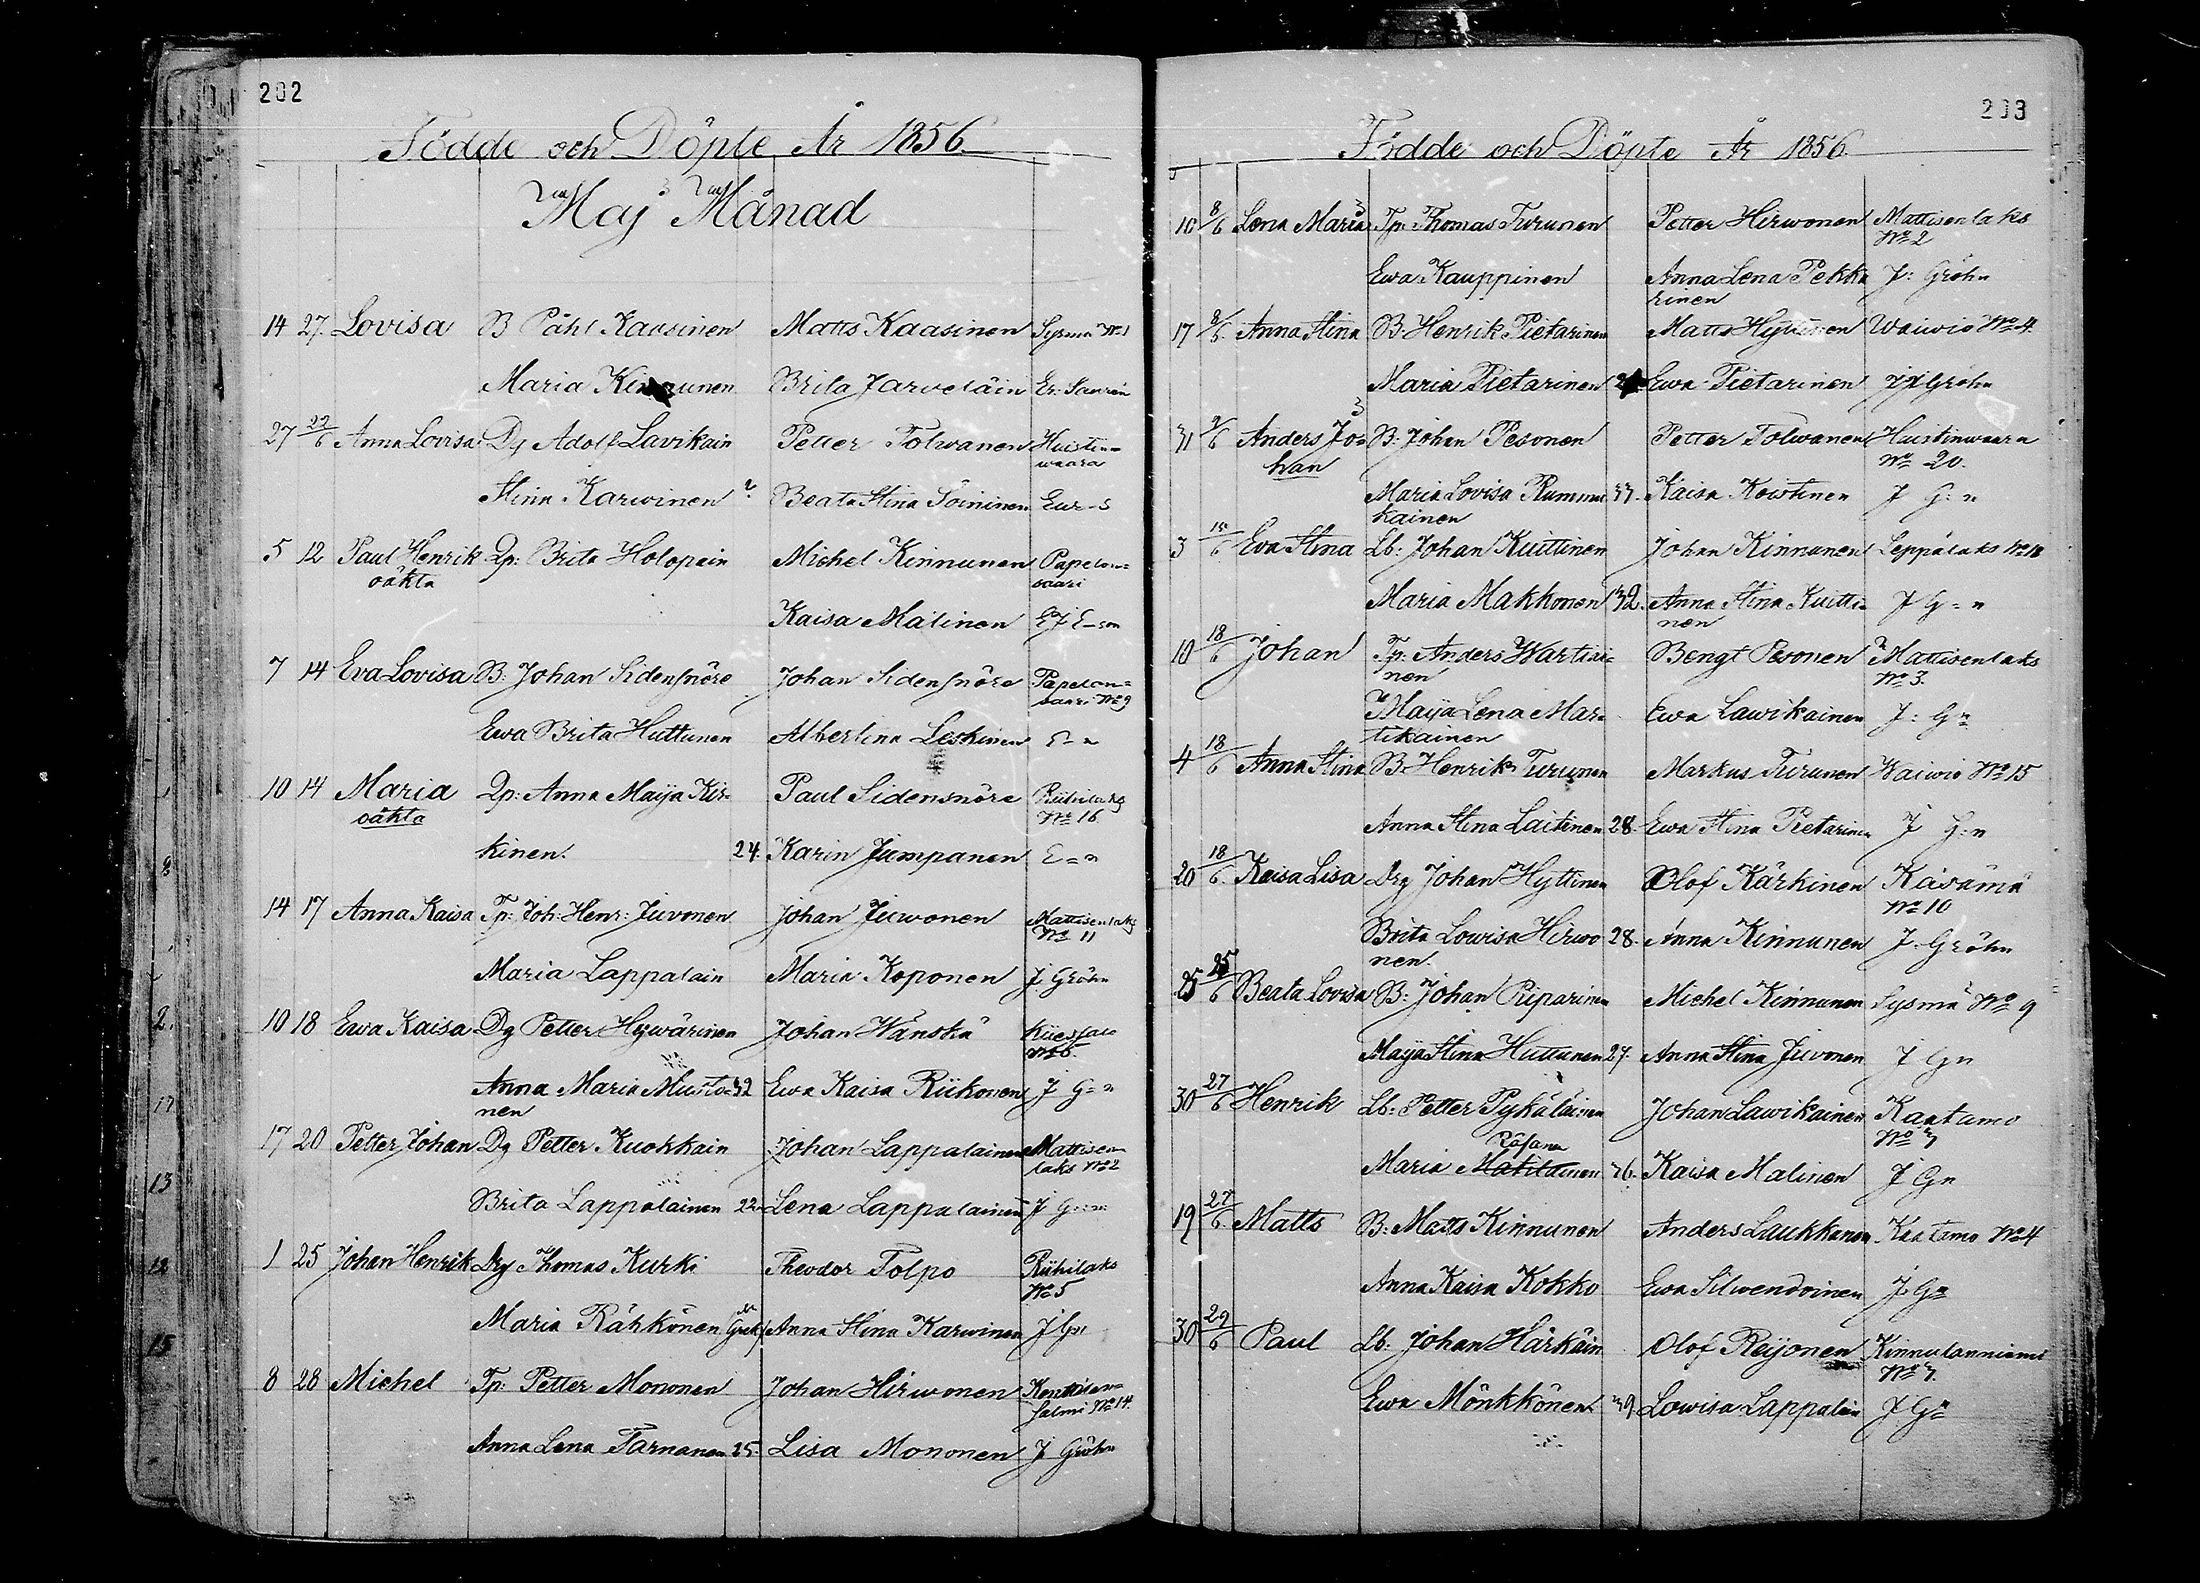 202
Födde och Döpte År 1856
Maj Månad
14 27. Lovisa B Påhl Kaasinen Matts Kaasinen Sysmä No 1
Maria Kinnunen Brita Jarveläin Er: Saurén
27 27/6 Anna Lovisa Dg Adolf Lavikain Petter Tolwanen Huistin=
waara
Stina Karvinen Beata Stina Soininen
5 12 Paul Henrik Qp: Brita Holopain Michel Kinnunen Papelon=
oäkta saari
Kaisa Malinen
7 14 Eva Lovisa B: Johan Sidensnöre Johan Sidensnöre Papelon=
saari No 9
Ewa Brita Huttunen Albertina Leskinen E=n
10 14 Maria Qp: Anna Maija Kir= Paul Sidensnöre Riihilaks
oäkta No 16
kinen. 24. Karin Jumpanen E=n
14 17 Anna Kaisa Tp: Joh: Henr: Juvonen Johan Juwonen Mattisenlaks
No 11
Maria Lappalain Maria Koponen J Gröhn
10 18 Ewa Kaisa Dg Petter Hywärinen Johan Wänskä
Anna Maria Musto= 32 Ewa Kaisa Riikonen J G=n
nen
17 20 Petter Johan Dg Petter Kuokkain Johan Lappalainen Mattisen=
laks No 2
Brita Lappalainen 22. Lena Lappalainen J G=n
1 25 Johan Henrik Drg Thomas Kurki Theodor Tolpo Riihilaks
No 5
Maria Rähkönen Anna Stina Karwinen J Gn
8 28 Michel Tp: Petter Mononen Johan Hirwonen
salmi No 14.
Anna Lena Tarnanen 25. Lisa Mononen J Gröhn
203
Födde och Döpte År 1856
10 8/6 Lena Maria Tp: Thomas Turunen Petter Hirwonen Mattisenlaks
No 2
Ewa Kauppinen Anna Lena Pekka J: Gröhn
rinen
17 8/6. Anna Stina B: Henrik Pietarinen Matts Hyttinen Waiwio No 4
Maria Pietarinen Ewa Pietarinen J J Gröhn
31 9/6 Anders Jo= B: Johan Pesonen Petter Tolwanen Huistinwaara
han No 20.
Maria Lovisa Rummu 33. Kaisa Kowtinen J G=n
kainen
3 15/6 Eva Stina Lb: Johan Kuittinen Johan Kinnunen Leppälaks No 18
Maria Makkonen 32. Anna Stina Kuitti= J G=n
nen
10 18/6 Johan Tp: Anders Wartiai= Bengt Pesonen Mattisenlaks
nen No 3.
Maija Lena Mar= Ewa Lawikainen J: Gn
tikainen
4 18/6 Anna Stina B Henrik Turunen Markus Turunen Waiwio No 15
Anna Stina Laitinen 28. Ewa Stina Pietarinen J G=n
20 18/6. Kaisa Lisa Drg Johan Hyttinen Olof Kärkinen Käsämä
No 10
Brita Lowisa Hirwo 28. Anna Kinnunen J Gröhn
nen.
25 25/6 Beata Lovisa B: Johan Piiparinen Michel Kinnunen Sysmä No 9
Maija Stina Huttunen 27. Anna Stina Juvonen J Gn
30 27/6 Henrik Lb: Petter Pykäläinen Johan Lawikainen Kaatamo
No 7
Räsänen
Maria Matilainen 36. Kaisa Malinen J Gn
19 27/6. Matts B: Matts Kinnunen Anders Laukkanen Kaatamo No 4
Anna Kaisa Kokko Ewa Silwendoinen J Gn
30 29/6 Paul Lb: Johan Härkäin Olof Reijonen Kinnulanniemi
No 7.
Ewa Mönkkönen 39. Lowisa Lappalain J Gn